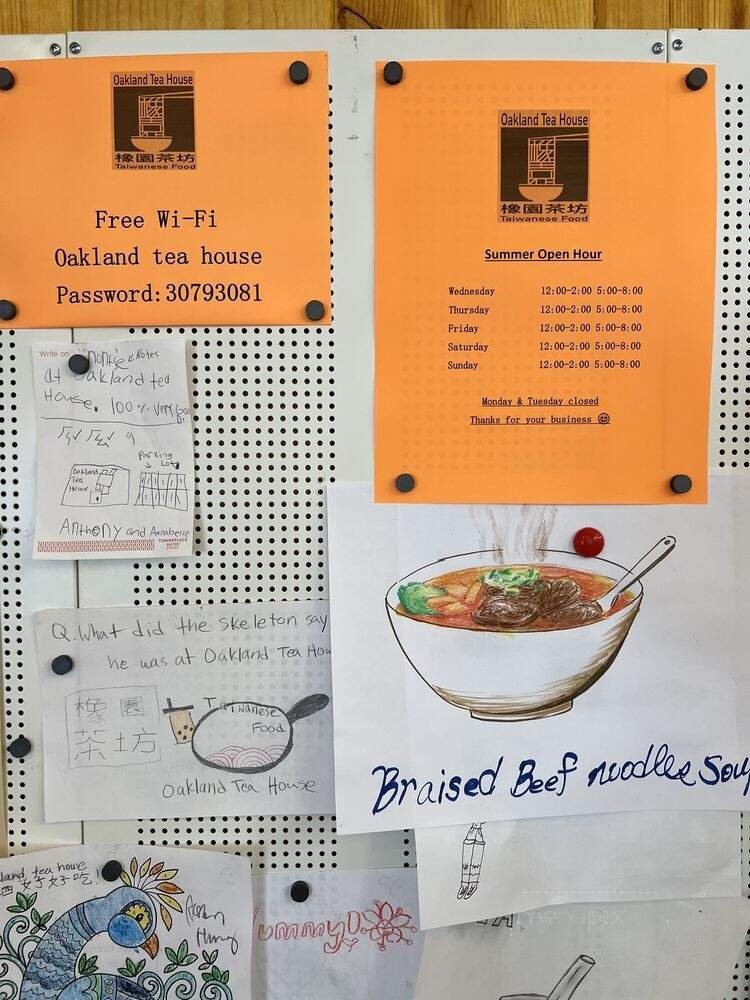 Oakland Tea House
橡園茶坊
Taiwanese Food
Free Wi-Fi
Oakland tea house
Password:30793081
Oakland Tea House
橡園茶坊
Taiwanese Food
Summer Open Hour
Wednesday 12:00-2:00 5:00-8:00
Thursday 12:00-2:00 5:00-8:00
Friday 12:00-2:00 5:00-8:00
Saturday 12:00-2:00 5:00-8:00
Sunday 12:00-2:00 5:00-8:00
Monday & Tuesday closed
Thanks for your business 😄
Write on
Notes
at Oakland tea
House. 100% Very Good
Parking
Lot
Oakland
Tea
House
Anthony and Annabelle
TOWNEPLACE
Q. What did the skeleton say
he was at Oakland Tea Hou
橡園
茶坊
Taiwanese
Food
Oakland Tea House
Braised Beef noodles Soup
land tea house
好好吃!
Yummy